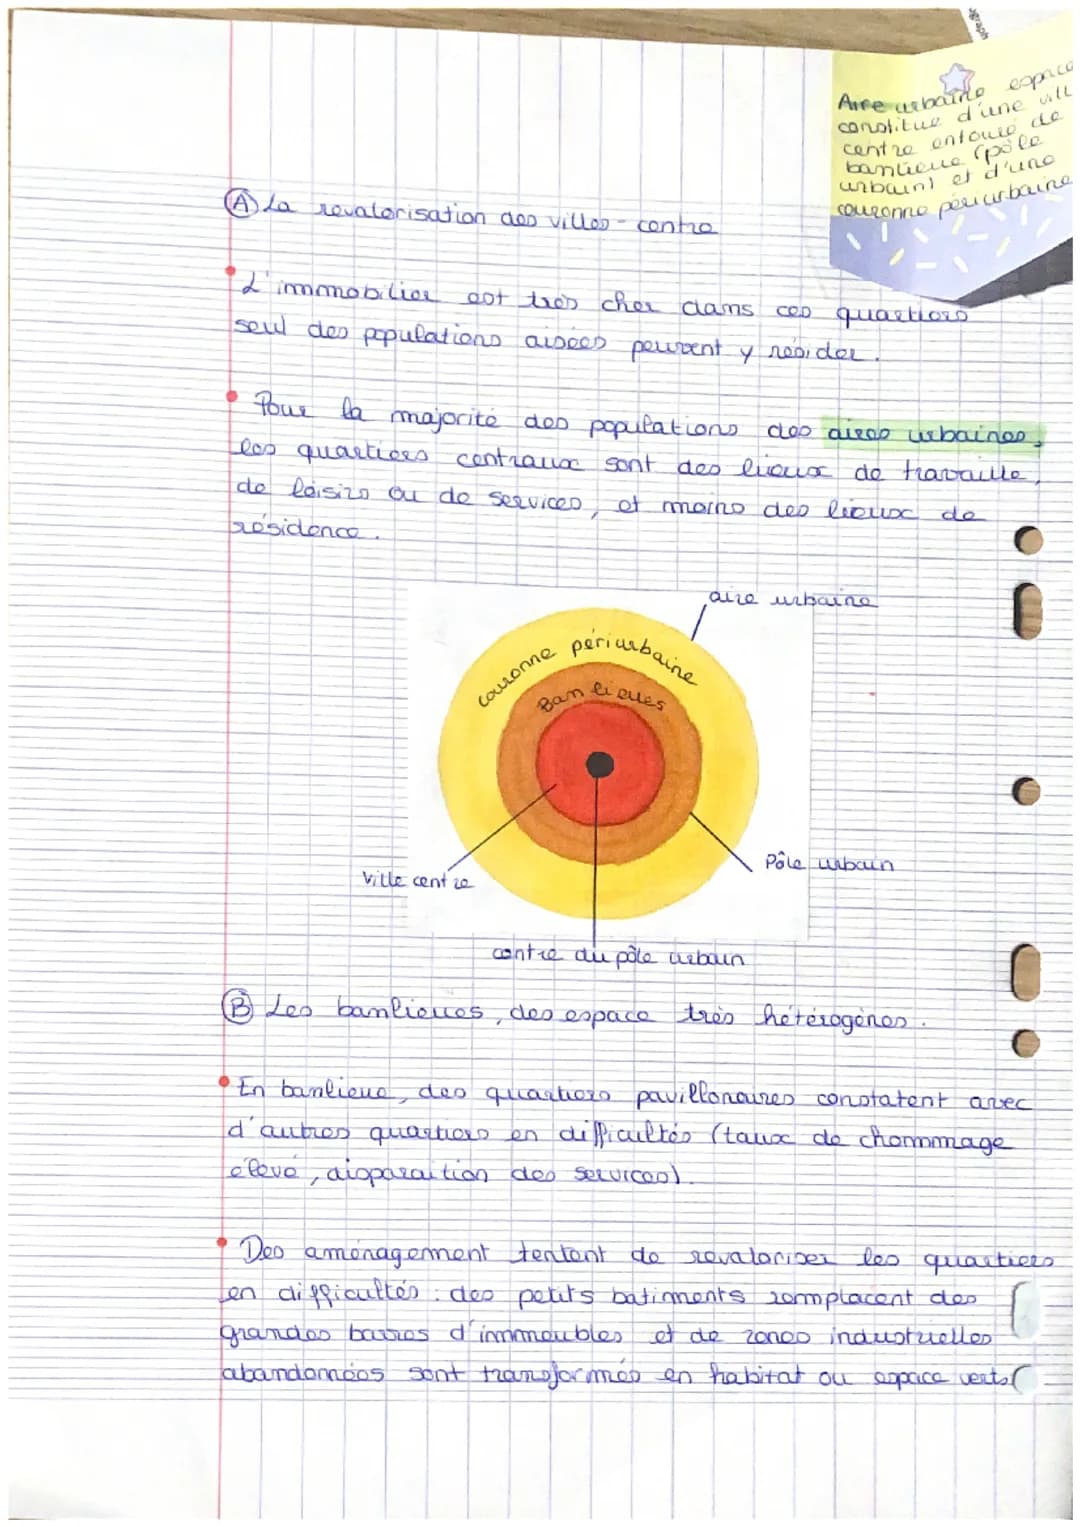 agraph
Aire urbaine espace
constitué d'une vill
centre entouré de
banlieue (pôle
urbain) et d'une
couronne périurbaine
A La revalorisation des villes-centre
L'immobilier est très cher dans ces quartiers
seul des populations aisées peuvent y résider.
Pour la majorité des populations des aires urbaines,
les quartiers centraux sont des lieux de travaille,
de loisirs ou de services, et moins des lieux de
résidence.
aire urbaine
couronne périurbaine
Banlieues
Pôle urbain
Ville centre
centre du pôle urbain
B Les banlieues, des espace très hétérogènes.
En banlieue, des quartiers pavillonaires constatent avec
d'autres quartiers en difficultés (taux de chommage
élevé, disparaition des services).
Des aménagement tentent de revaloriser les quartiers
en difficultés : des petits batiments remplacent des
grandes barres d'immeubles et de zones industruelles
abandonnées sont transformés en habitat ou espace verts